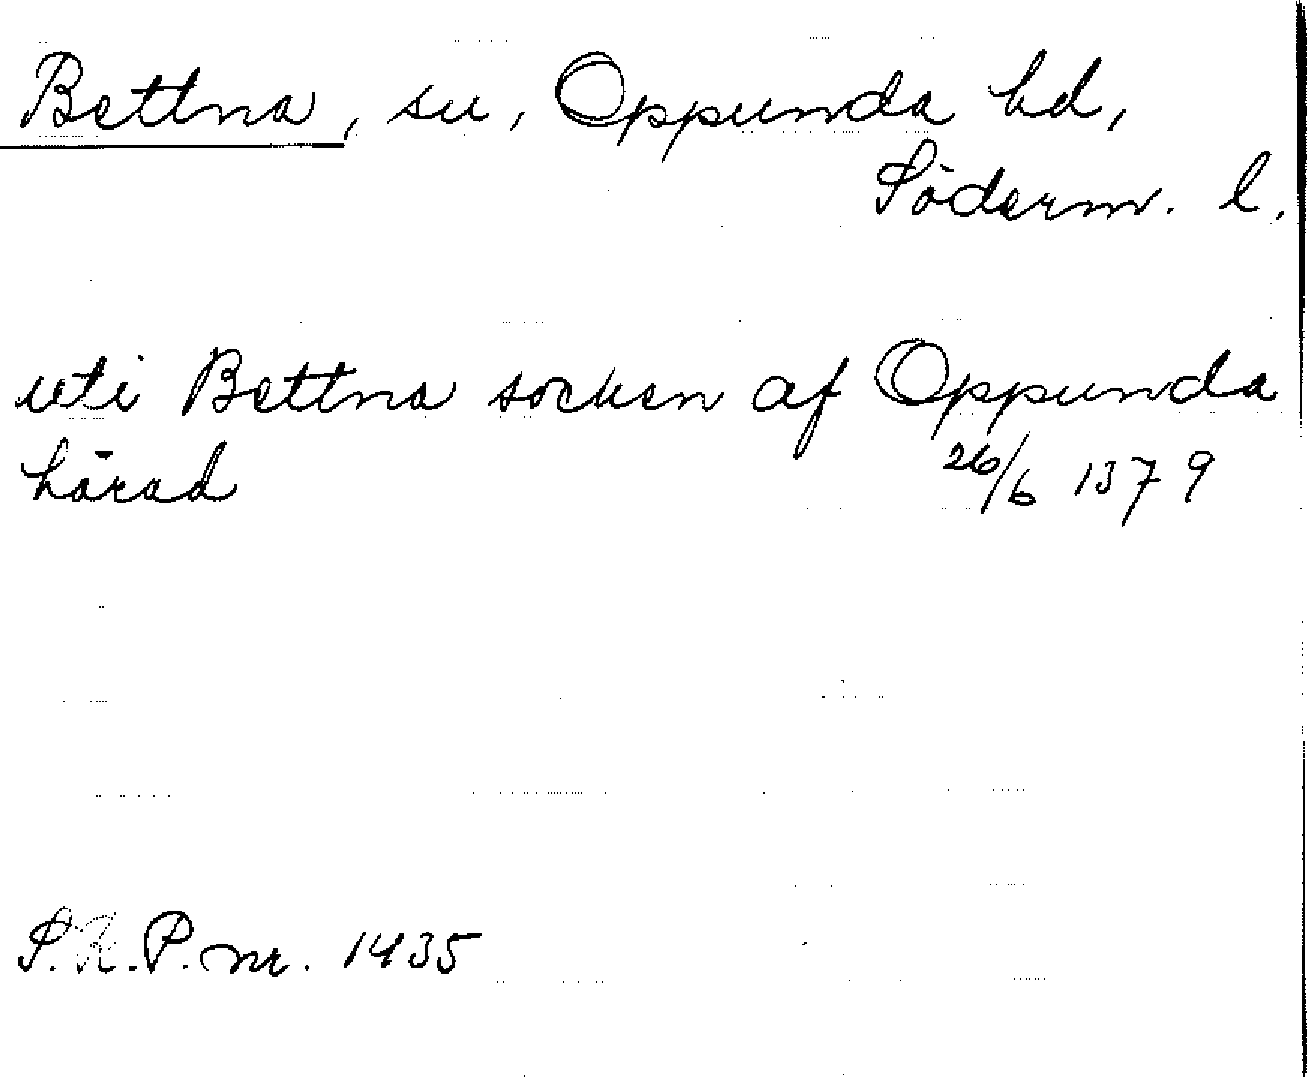 Bettna, sn, Oppunda hd,
Söderm. l.
uti Bettna socken af Oppunda
härad 26/6 1379
S.R.P. nr. 1435